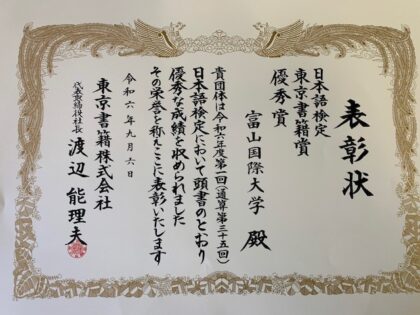 表彰状
日本語検定
東京書籍賞
優秀賞
富山国際大学 殿
貴団体は令和六年度第一回(通算第三十五回)
日本語検定において頭書のとおり
優秀な成績を収められました
その栄誉を称えここに表彰いたします
令和六年九月六日
東京書籍株式会社
代表取締役社長 渡辺 能理夫